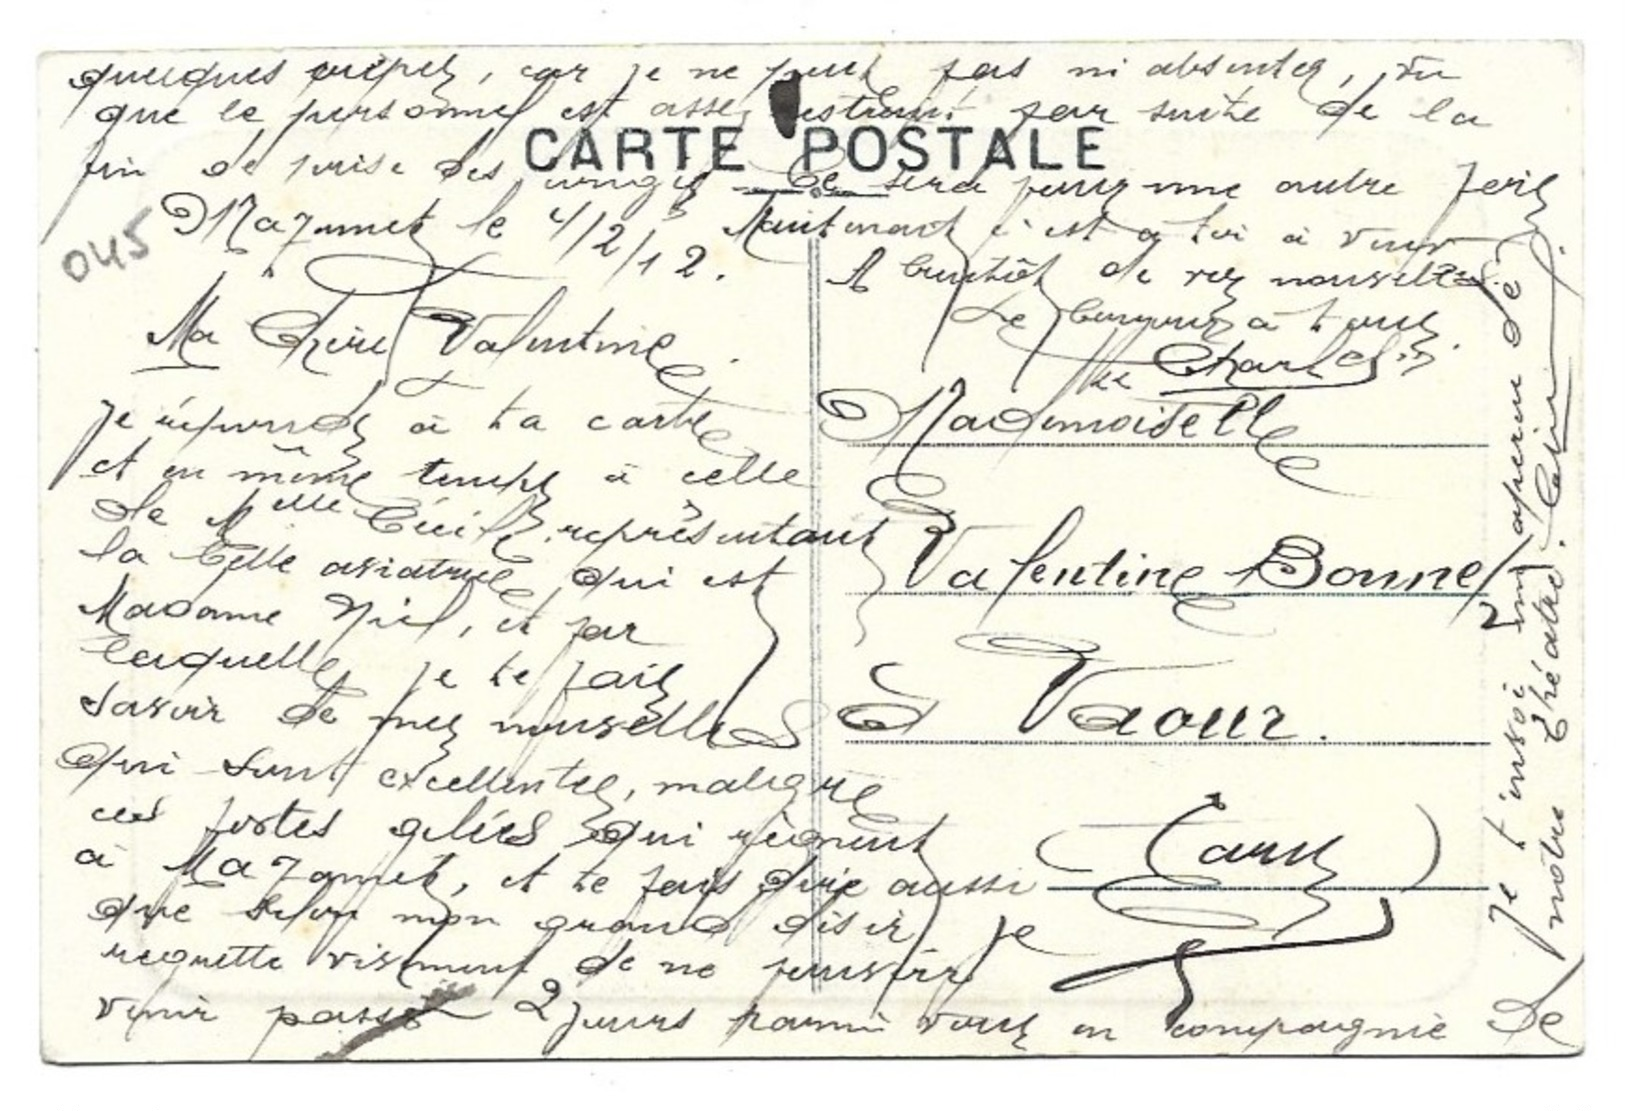 Mazamet le 4/2/12.
Ma Chère Valentine.
Je réponds à ta carte
et en même temps à celle
de Melle Cécile représentant
la belle asiatique qui est
Madame Niel, et par
laquelle je te fais
savoir de mes nouvelles
qui sont excellentes, malgré
ces fortes gelées qui règnent
à Mazamet, et te fais dire aussi
que selon mon grand désir, je
regrette vivement de ne pouvoir
venir passé 2 jours parmi vous en compagnie de
quelques crêpes, car je ne peux pas m'absenter, vu
que le personnel est assez restreint par suite de la
fin de prise des congés. Ce sera pour une autre fois
Maintenant c'est à toi à venir
A bientôt de vos nouvelles.
Le bonjour à tous.
Charles
CARTE POSTALE
045
Mademoiselle
Valentine Bonnet
à Vaour.
(Tarn)
Je t'envoi un aperçu de
notre théâtre.